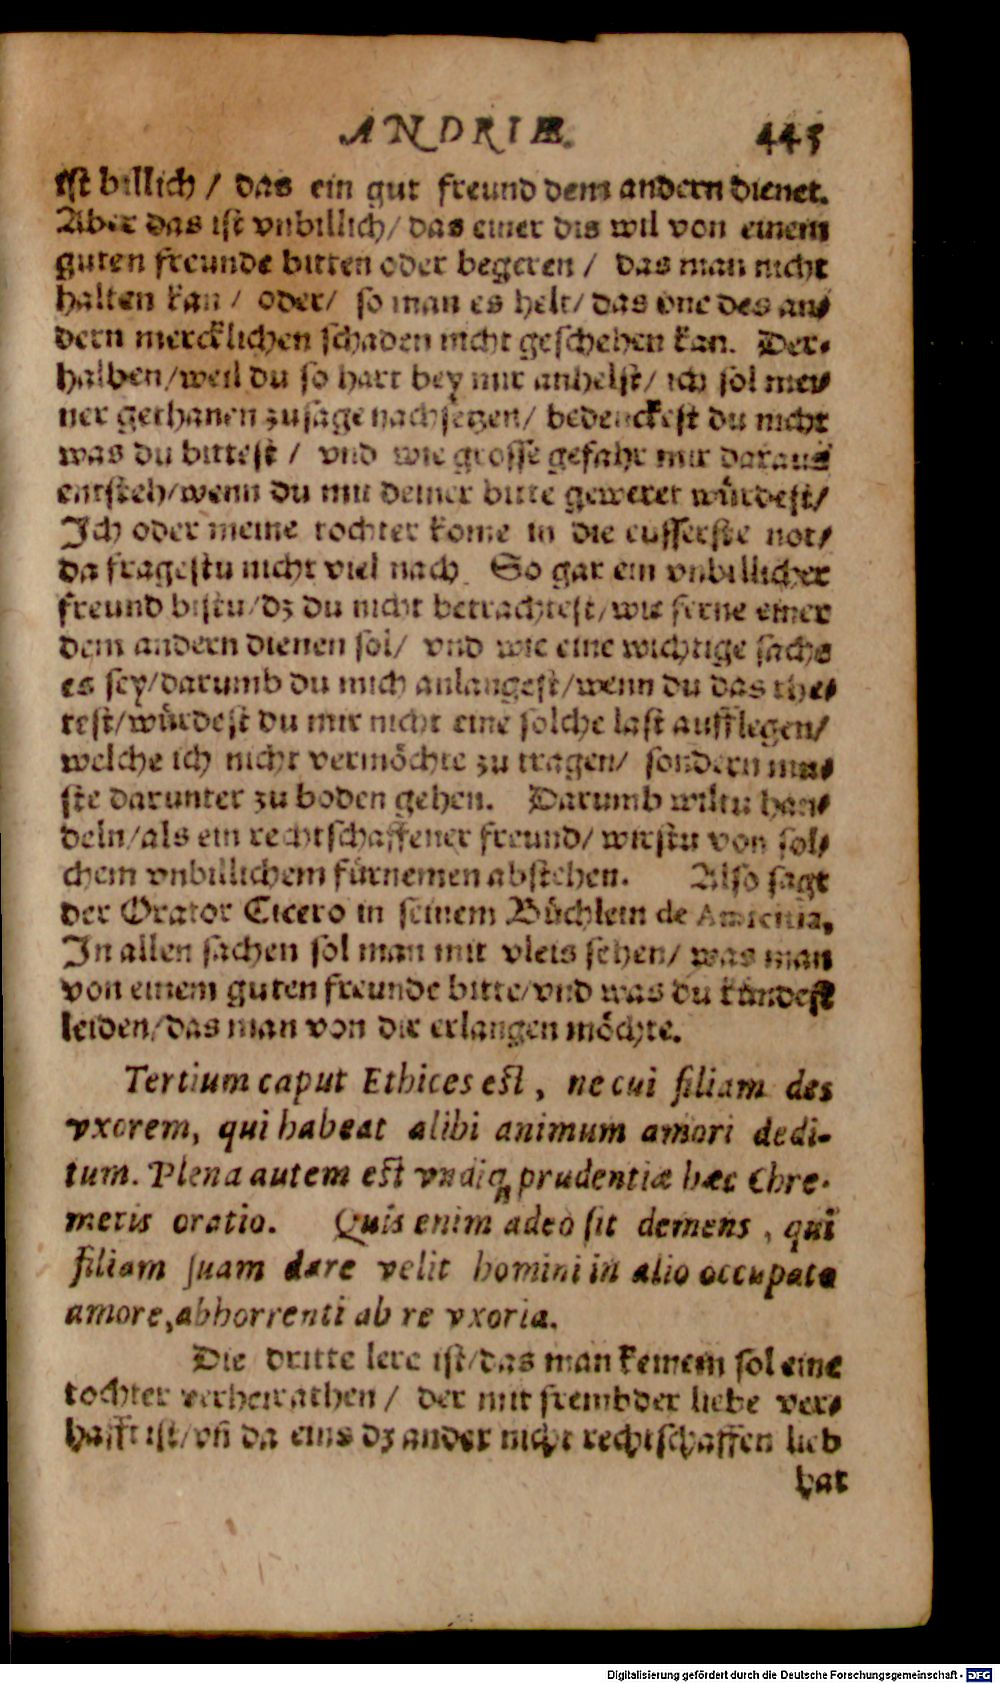 ANDRIÆ. 445
ist billich / das ein gut freund dem andern dienet.
Aber das ist vnbillich/ das einer dis wil von einem
guten freunde bitten oder begeren / das man nicht
halten kan / oder/ so man es helt/ das one des an⸗
dern mercklichen schaden nicht geschehen kan. Der⸗
halben/weil du so hart bey mir anhelst/ ich sol mei⸗
ner gethanen zusage nachsetzen/ bedenckest du nicht
was du bittest / vnd wie grosse gefahr mir daraus
entsteh/wenn du mit deiner bitte geweret würdest/
Ich oder meine tochter kome in die eusserste not/
da fragestu nicht viel nach. So gar ein vnbillicher
freund bistu/dz du nicht betrachtest/wie ferne einer
dem andern dienen sol/ vnd wie eine wichtige sache
es sey/darumb du mich anlangest/wenn du das the⸗
test/würdest du mir nicht eine solche last aufflegen/
welche ich nicht vermöchte zu tragen/ sondern mus⸗
ste darunter zu boden gehen. Darumb wiltu han⸗
deln/als ein rechtschaffener freund/ wirstu von sol⸗
chem vnbillichem fürnemen abstehen. Also sagt
der Orator Cicero in seinem Büchlein de Amicitia,
In allen sachen sol man mit vleis sehen/ was man
von einem guten freunde bitte/vnd was du kündest
leiden/das man von dir erlangen möchte.
Tertium caput Ethices est, ne cui filiam des
vxorem, qui habeat alibi animum amori dedi-
tum. Plena autem est vndiq; prudentiæ hæc Chre-
metis oratio. Quis enim adeò sit demens, qui
filiam suam dare velit homini in alio occupato
amore, abhorrenti ab re vxoria.
Die dritte lere ist/das man keinem sol eine
tochter verheirathen / der mit frembder liebe ver⸗
hafft ist/vñ da eins dz ander nicht rechtschaffen lieb
hat
Digitalisierung gefördert durch die Deutsche Forschungsgemeinschaft - DFG